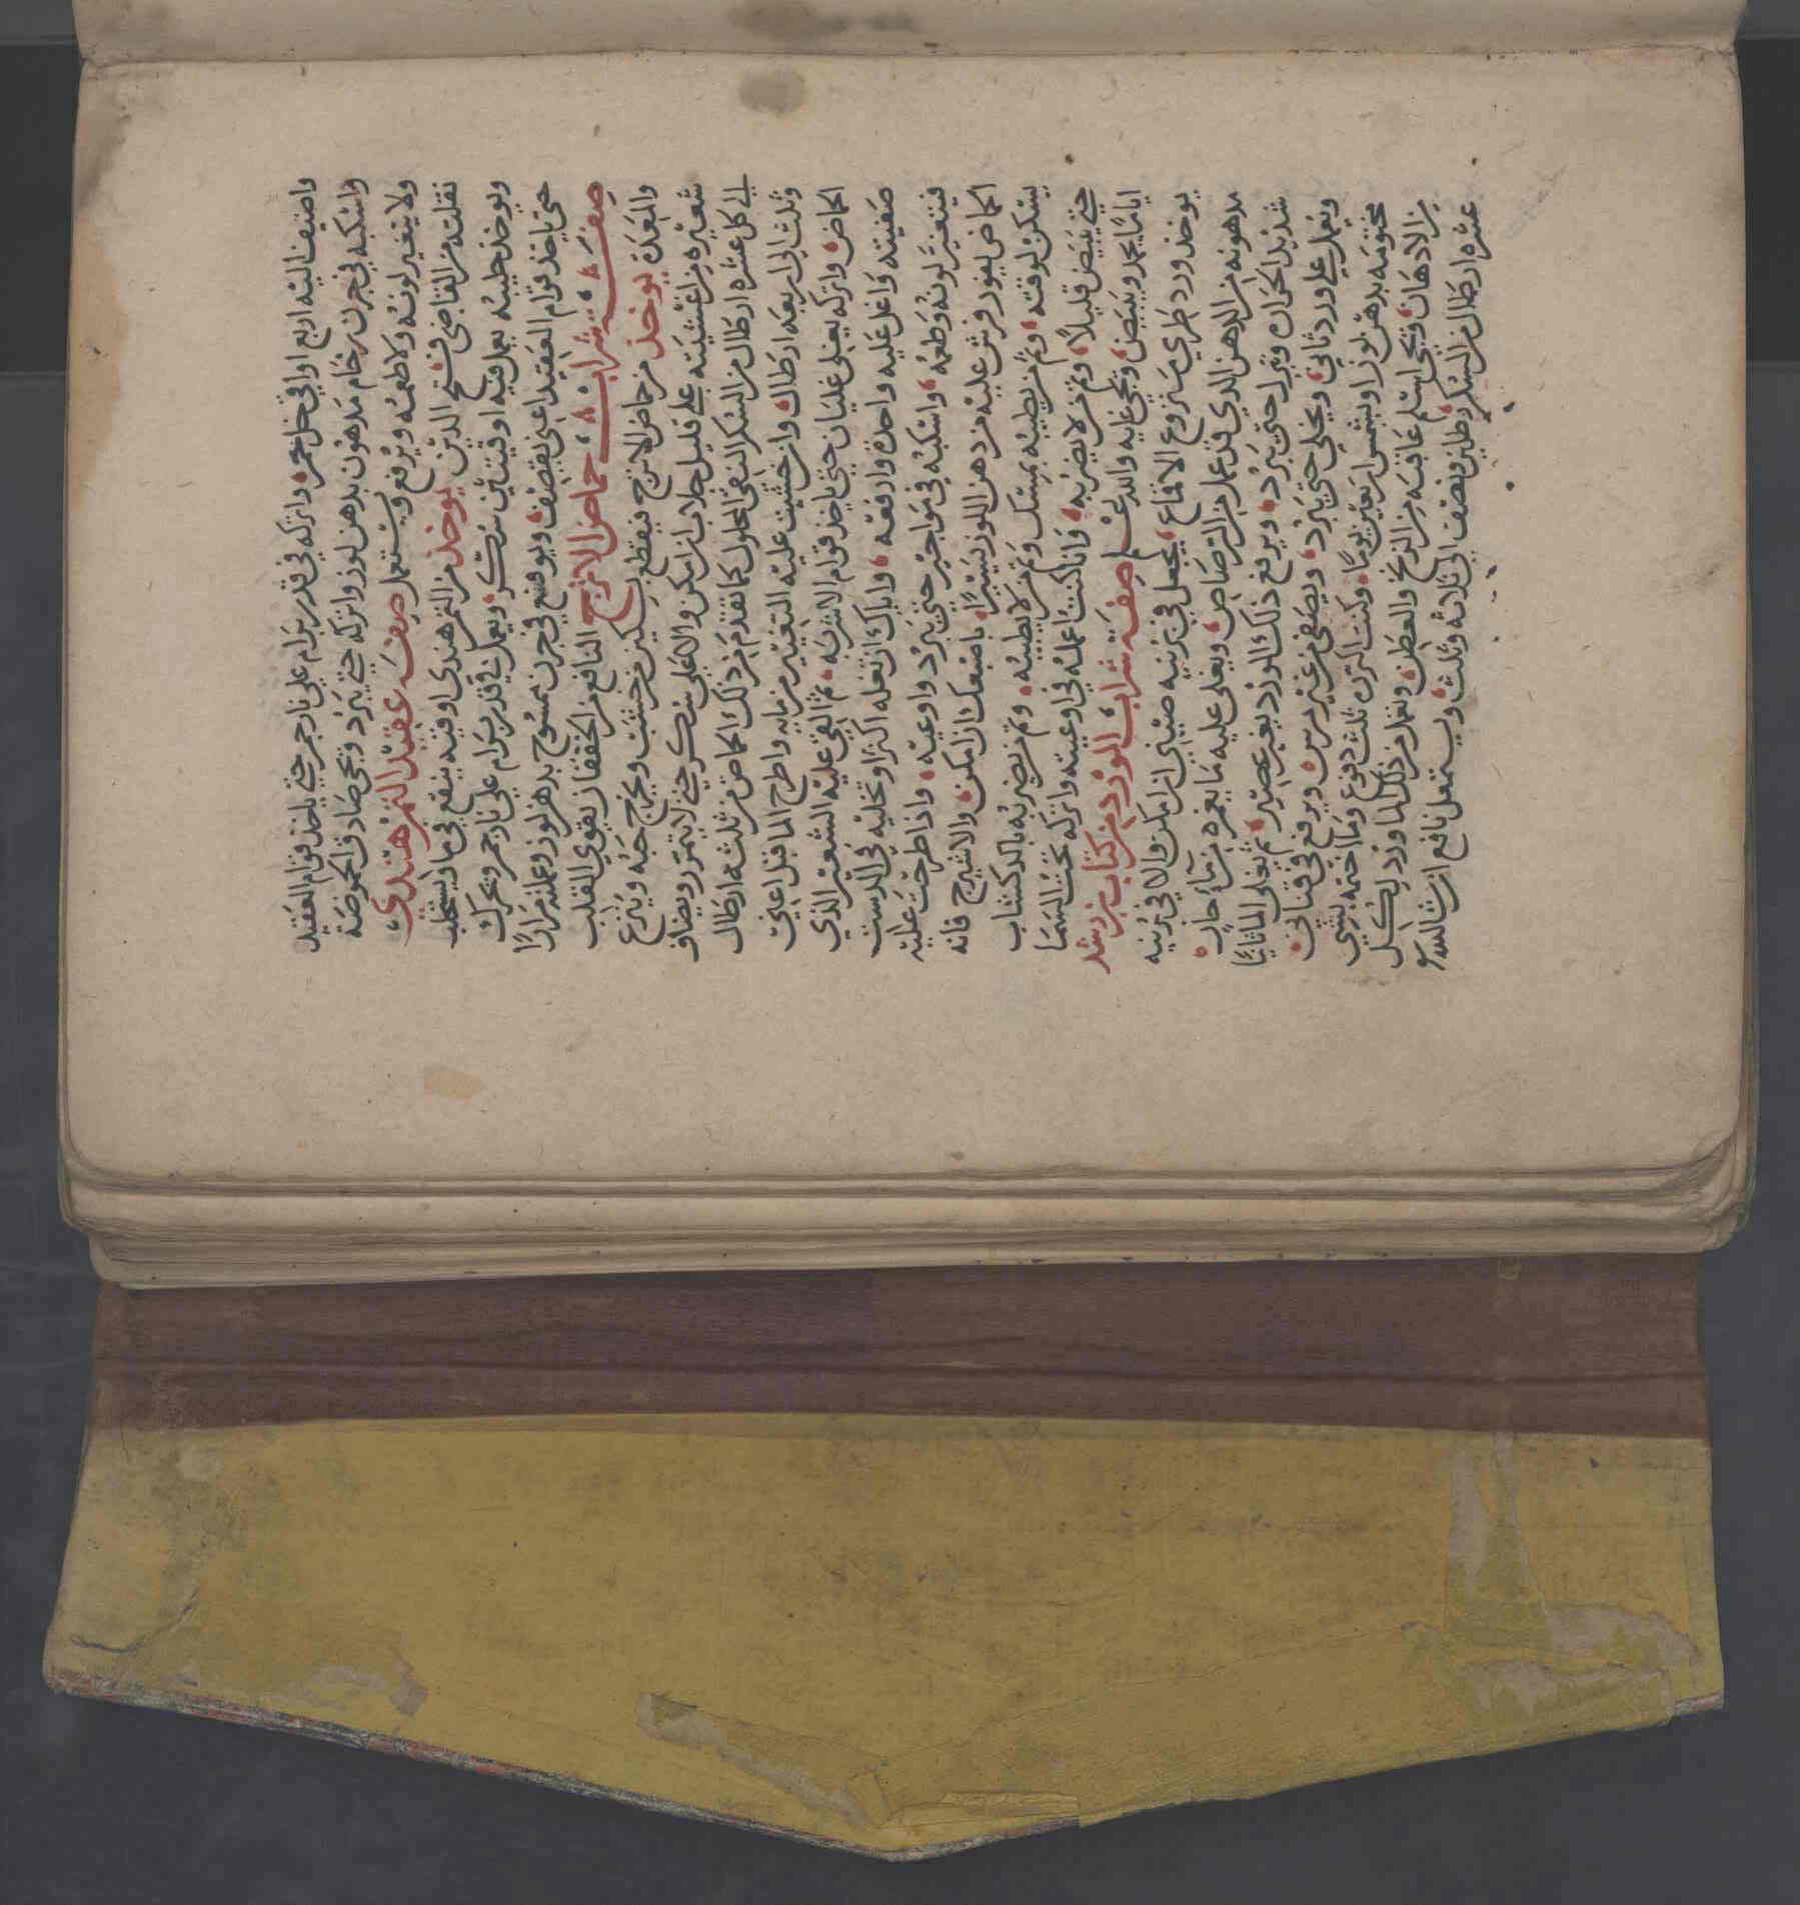 واضيف اليه اربع اواقي خل خمر واتركه في قدر برام علي نار جمر حتي ياخذ قوام العقيد
واسكبه في جرن رخام مدهون بدهن لوز واتركه حتي يبرد ويجي صادق الحموضة
ولا يتغير لونه ولا طعمه ويرفع ويستعمل صفة عقيد التمر هندي
نقلته من القاضي فتح الدين يوخذ من التمر هندي اوقيه ينقع في ما ويستحلب
ويوخذ حليبه يعمل فيه اوقيتين سكر ويعمل في قدر برام علي نار جمر ويحرك
حتي ياخذ قوام العقيد اعني يقصف ويوضع في جرن ممسوح بدهن لوز وعملته مرارا
صفة شراب حماض الاترج النافع من الخفقان يقوي القلب
والمعدة يوخذ من حماض الاترج فيقطع بسكين من خشب ويخرج حبه وينزع
شعيره من اغشيته علي قليل جلاب ان امكن والا علي سكر حتي لا يتمرر ويضاف
الي كل عشره ارطال من السكر النقي المحلول كما تقدم من ذلك الحماض من ثلثه ارطال
وثلث الي اربعه ارطال وان خشيت عليه التغيير من مايه واطرح الما قبل اعني
الحماض واتركه يغلي غليان حتي ياخذ قوام الاشربه ثم القي عليه الشعير الذي
صفيته واغل عليه واحدة وادفعه واياك ان تغله اكثر او تخليه في الدست
فيتغير لونه وطعمه واسكبه في مواجير حتي يبرد واوعيه واذا طرحت عليه
الحماض يفور فرش عليه من دهن اللوز يسيرا باصبعك ان امكن والا شيرج فانه
يسكن لوقته وثم من يطيبه بمسك وثم من لا يطيبه وثم من يضربه بالدكشاب
حتي يبيض قليلا وثم من لا يضربه وانا كنت اعمله في اوعيته واتركه تحت السما
اياما يجمد ويبيض ويجي غايه والله اعلم صفة شراب الورد من كتاب بن رشد
يوخذ ورد طري منزوع الاقماع يجعل في برنيه صيني ان امكن والا في برنيه
مدهونه من الدهن الذي قد عمل من الرصاص ويغلى عليه ما يغمره من ماء حار
شديد الحراره ويترك حتى يبرد ويرفع ذلك الورد بغير عصير ثم يغلى الما ثانيا
ويعمل علي ورد ثاني ويخلي حتى يبرد ويصفى من غير مرس ويرفع في قناني
مختومه بدهن لوز او بشمس اربعين يوما وكنت اكرره ثلث دفوع وما اختمه بشي
من الادهان ويجي اسلم عاقبه من الزنخ والعطن ويعمل من ذلك الما ورد لكل
عشره ارطال من السكر رطلين ونصف الي ثلاثه وثلث ويستعمل نافع ان شا الله